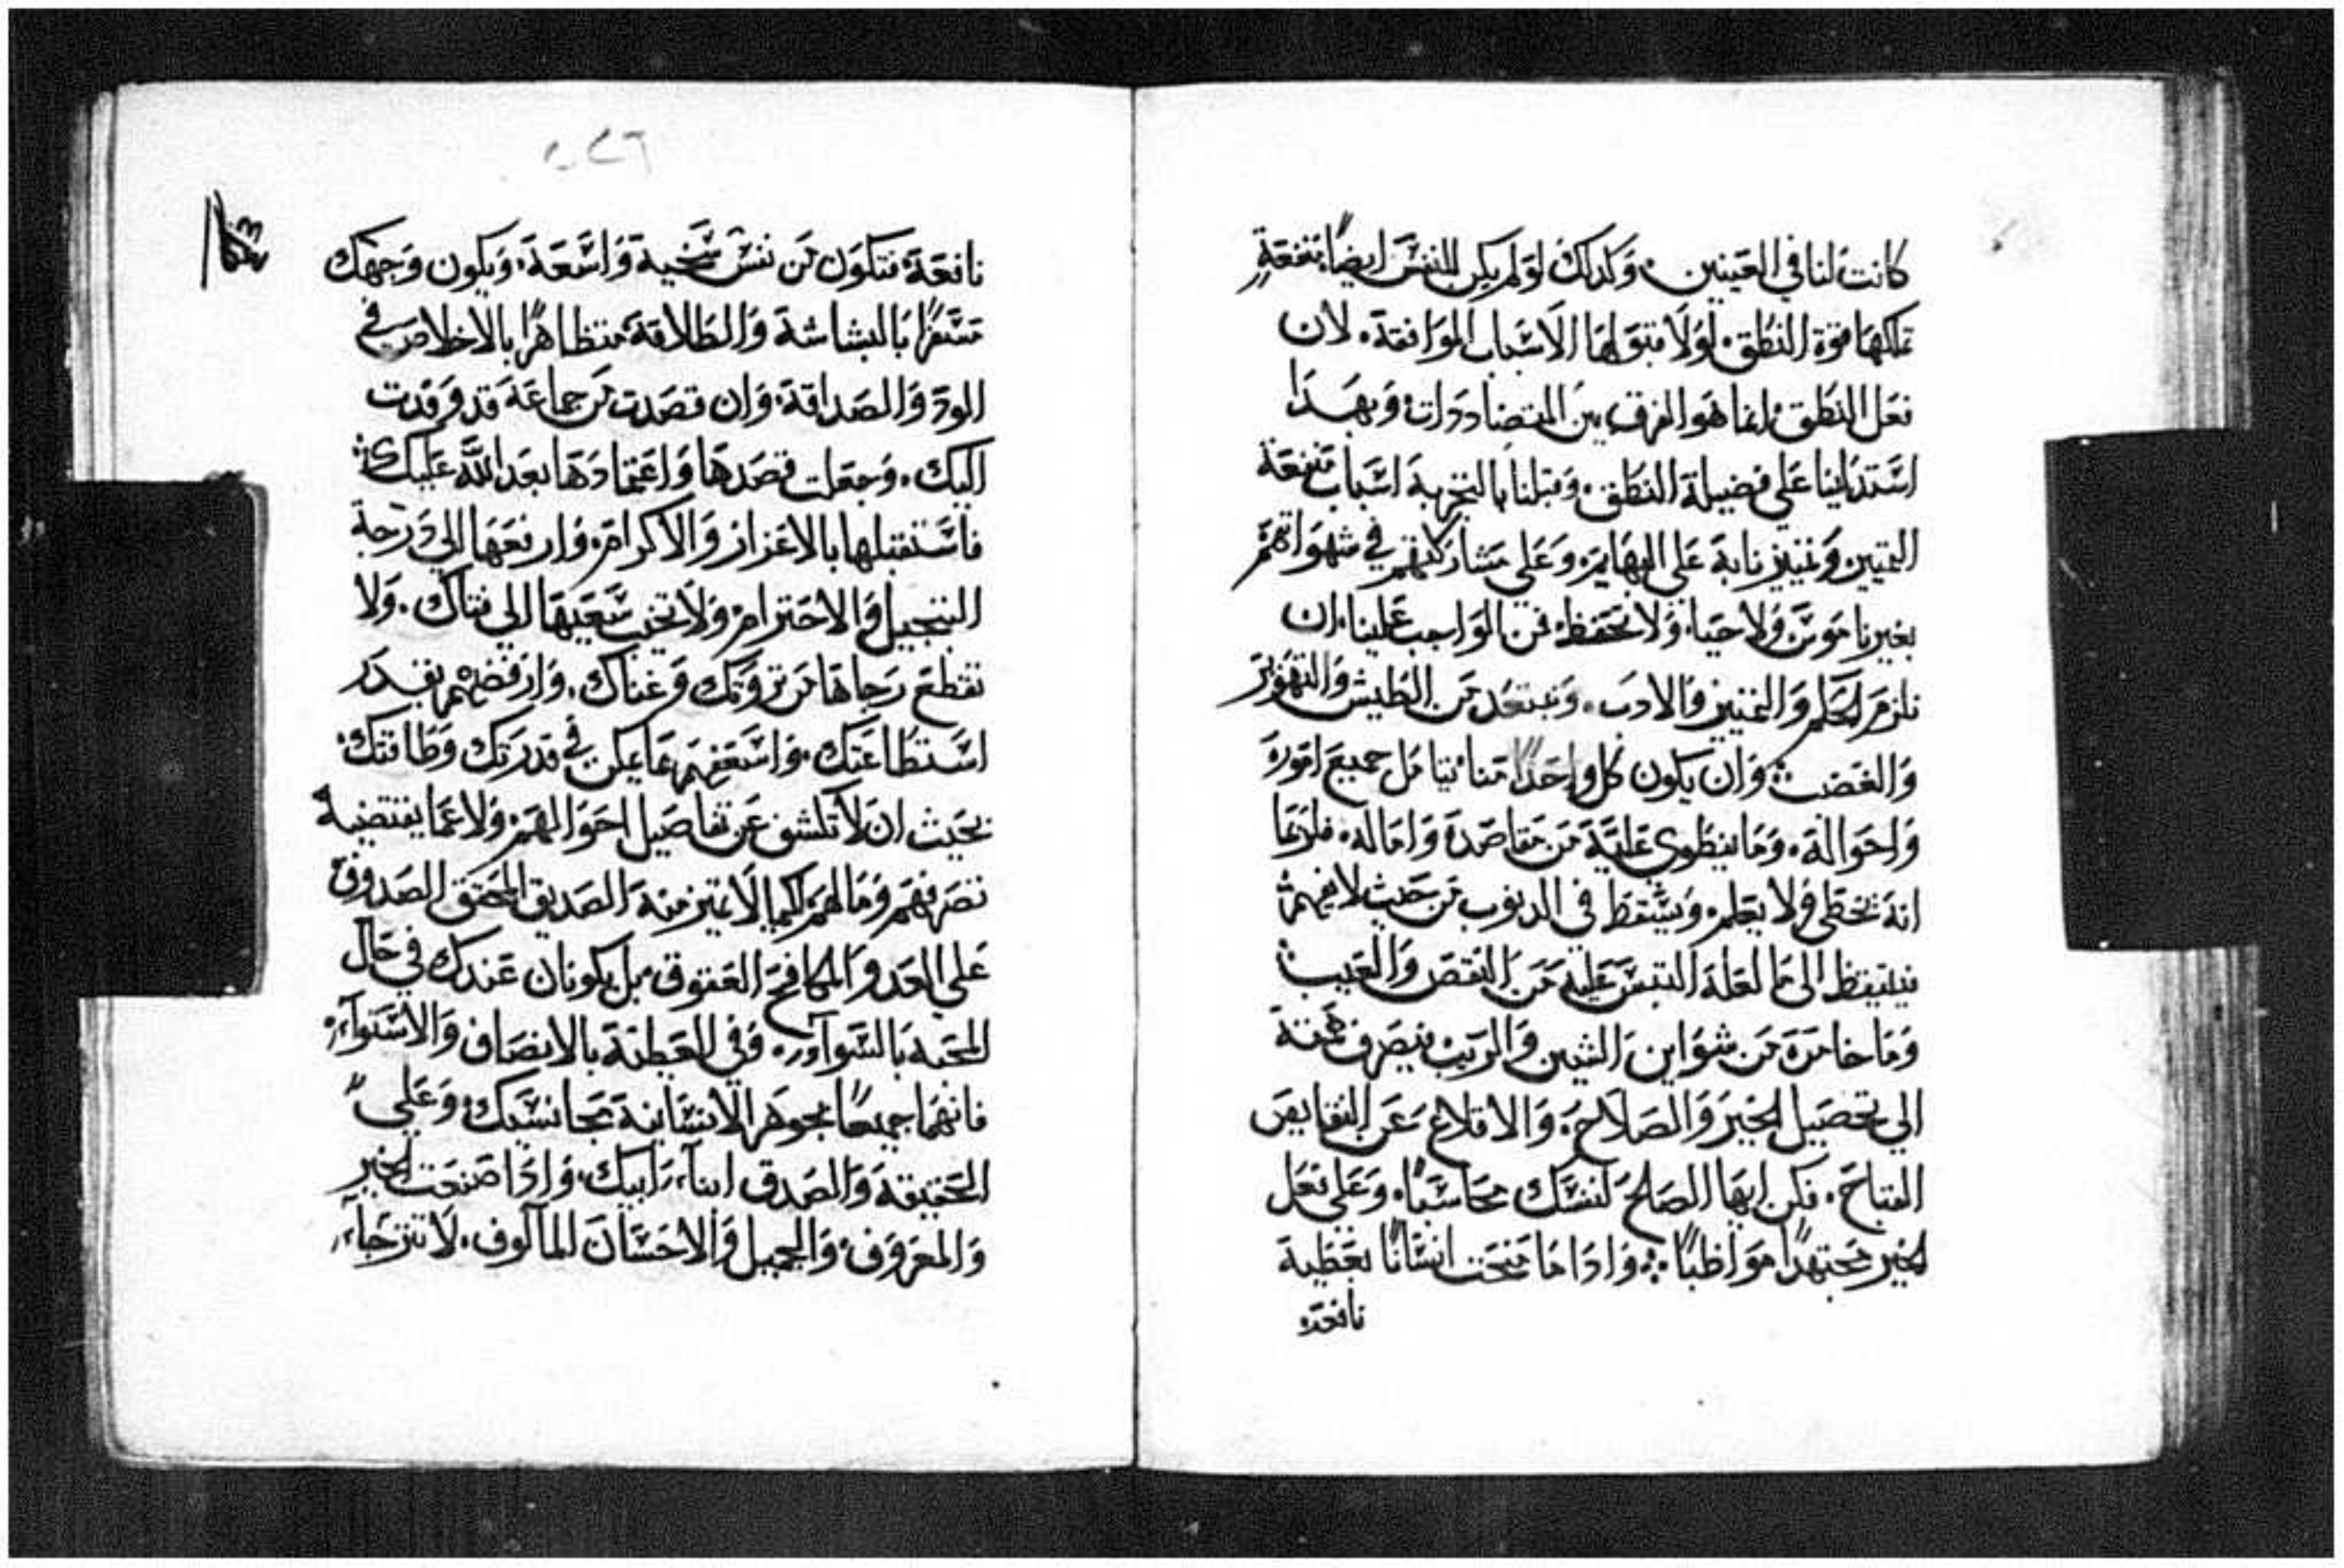 كانت لنا في العينين. وكذلك لو لم يكن للنفس ايضًا منفعةٍ
تملكها قوة النطق. لولا قبولها الاسباب الموافقة. لان
فعل النطق. انما هو الفرق بين المتضاددات. وبهذا
استدلينا على فضيلة النطق. وقبلنا بالتجربة اسباب منفعة
التميين وتميزنا به على البهايم. وعلى مشاركتهم في شهواتهم
بغير ناموس ولا حيا. ولا تحفظ. فمن الواجب علينا. ان
نلزم الحلم والتميز والادب. ونبتعد من الطيش والتهور
والغضب. وان يكون كل واحدًا منا يتامل جميع اموره
واحواله. وما ينطوي عليه من مقاصده واماله. فلربما
انه يخطي ولا يعلم. ويسقط في الذنوب من حيث لا يفهم
فيتيقظ الى ما لعله التبس عليه من النقص والعيب
وما خامره من شواين الشين والريب فيصرف همته
الي تحصيل الخير والصلاح. والاقلاع عن النقايص
القباح. فكن ايها الصالح لنفسك محاسبًا. وعلى فعل
الخير مجتهدًا مواظبًا. واذا ما منحت انسانًا بعطية
نافعة
٢٤٦
نافعة فتكون من نفس سخية واسعة. ويكون وجهك
مسفرًا بالبشاشة والطلاقة متظاهرًا بالاخلاص في
الود والصداقة. وان قصدت من جماعة قد وفدت
اليك. وجعلت قصدها واعتمادها بعد الله عليك
فاستقبلها بالاعزاز والاكرام. وارفعها الي درجة
التبجيل والاحترام. ولا تخيب سعيها الي فناك. ولا
تقطع رجاها من ثروتك وغناك. وارفضهم بقدر
استطاعتك. واسعفهم بما يمكن في قدرتك وطاقتك.
بحيث ان لا تكشف عن تفاصيل احوالهم. ولا عما يقتضيه
تصرفهم وما لهم لكيما لا تميز منه الصديق المحقق الصدوق
على العدو المكافح العقوق. بل يكونان عندك في حال
المحبة بالسوآء. وفي العطية بالانصاف والاستوآء.
فانهما جميعًا بجوهر الانسانية مجانسيك. وعلى
الحقيقة والصدق ابنآء ابيك. واذا صنعت الخير
والمعروف. والجميل والاحسان المالوف. لا تترجآء